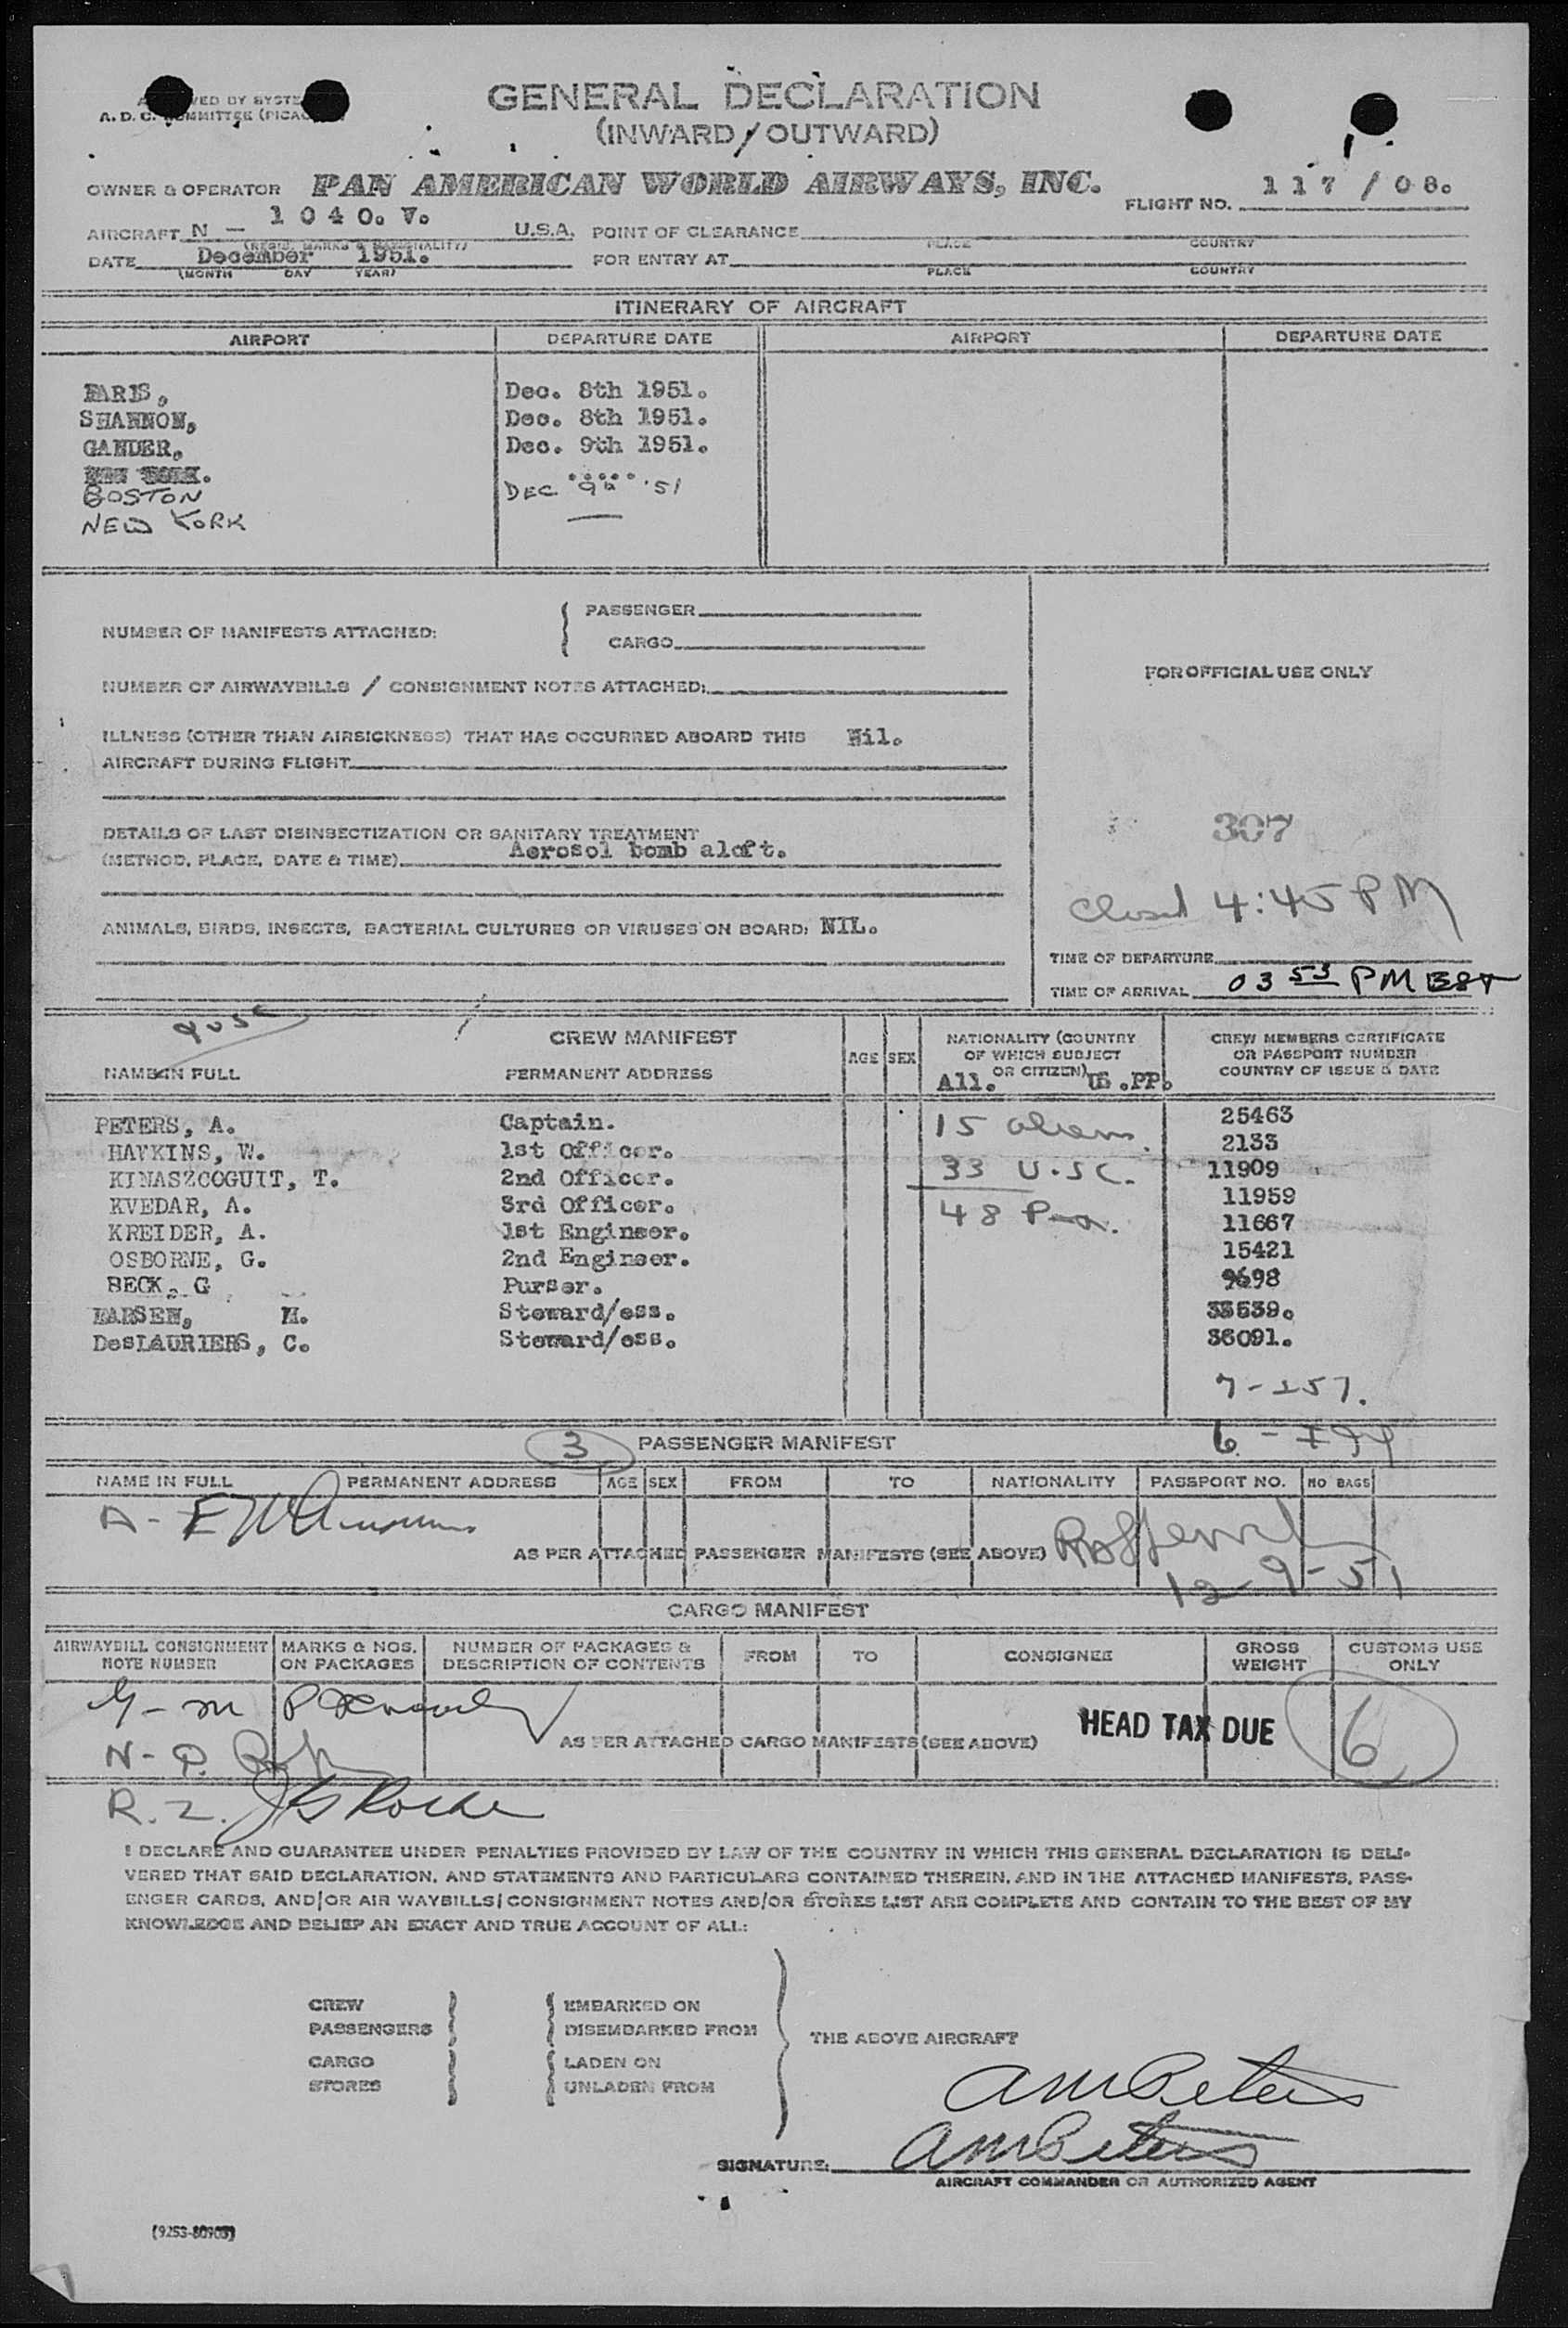 GENERAL DECLARATION
(INWARD / OUTWARD)
A. D. C. COMMITTEE
OWNER & OPERATOR PAN AMERICAN WORLD AIRWAYS, INC.
FLIGHT NO. 117 / 08.
AIRCRAFT N - 1040. V. U.S.A.
(REGIS. MARKS & NATIONALITY)
POINT OF CLEARANCE
PLACE COUNTRY
DATE December 1951.
(MONTH DAY YEAR)
FOR ENTRY AT
PLACE COUNTRY
ITINERARY OF AIRCRAFT
AIRPORT DEPARTURE DATE AIRPORT DEPARTURE DATE
PARIS, Dec. 8th 1951.
SHANNON, Dec. 8th 1951.
GANDER, Dec. 9th 1951.
NEW YORK.
BOSTON DEC 9th '51
NEW YORK —
NUMBER OF MANIFESTS ATTACHED:
PASSENGER
CARGO
NUMBER OF AIRWAYBILLS / CONSIGNMENT NOTES ATTACHED:
ILLNESS (OTHER THAN AIRSICKNESS) THAT HAS OCCURRED ABOARD THIS Nil.
AIRCRAFT DURING FLIGHT
DETAILS OF LAST DISINSECTIZATION OR SANITARY TREATMENT
(METHOD, PLACE, DATE & TIME) Aerosol bomb aloft.
ANIMALS, BIRDS, INSECTS, BACTERIAL CULTURES OR VIRUSES ON BOARD: NIL.
FOR OFFICIAL USE ONLY
307
Closed 4:45 PM
TIME OF DEPARTURE
TIME OF ARRIVAL 03 53 PM EST
9 USC
CREW MANIFEST
NAME IN FULL PERMANENT ADDRESS AGE SEX
NATIONALITY (COUNTRY
OF WHICH SUBJECT
OR CITIZEN)
All. US .PP.
CREW MEMBERS CERTIFICATE
OR PASSPORT NUMBER
COUNTRY OF ISSUE & DATE
PETERS, A. Captain. 25463
HAWKINS, W. 1st Officer. 2133
KINASZCOGUIT, T. 2nd Officer. 11909
KVEDAR, A. 3rd Officer. 11959
KREIDER, A. 1st Engineer. 11667
OSBORNE, G. 2nd Engineer. 15421
BECK, G Purser. 9698
LARSEN, H. Steward/ess. 33539.
DesLAURIERS, C. Steward/ess. 36091.
15 aliens
33 U.S.C.
48 Pax.
7-257.
3 PASSENGER MANIFEST
NAME IN FULL PERMANENT ADDRESS AGE SEX FROM TO NATIONALITY PASSPORT NO. NO BAGS
A - F
AS PER ATTACHED PASSENGER MANIFESTS (SEE ABOVE)
12-9-51
CARGO MANIFEST
AIRWAYBILL CONSIGNMENT
NOTE NUMBER
MARKS & NOS.
ON PACKAGES
NUMBER OF PACKAGES &
DESCRIPTION OF CONTENTS
FROM TO CONSIGNEE
GROSS
WEIGHT
CUSTOMS USE
ONLY
G - M
AS PER ATTACHED CARGO MANIFESTS (SEE ABOVE)
HEAD TAX DUE 6
N - Q.
R. Z. JG Roche
I DECLARE AND GUARANTEE UNDER PENALTIES PROVIDED BY LAW OF THE COUNTRY IN WHICH THIS GENERAL DECLARATION IS DELI-
VERED THAT SAID DECLARATION, AND STATEMENTS AND PARTICULARS CONTAINED THEREIN, AND IN THE ATTACHED MANIFESTS, PASS-
ENGER CARDS, AND/OR AIR WAYBILLS/CONSIGNMENT NOTES AND/OR STORES LIST ARE COMPLETE AND CONTAIN TO THE BEST OF MY
KNOWLEDGE AND BELIEF AN EXACT AND TRUE ACCOUNT OF ALL:
CREW
PASSENGERS
EMBARKED ON
DISEMBARKED FROM
CARGO
STORES
LADEN ON
UNLADEN FROM
THE ABOVE AIRCRAFT
AM Peters
SIGNATURE: AM Peters
AIRCRAFT COMMANDER OR AUTHORIZED AGENT
(9253-80903)